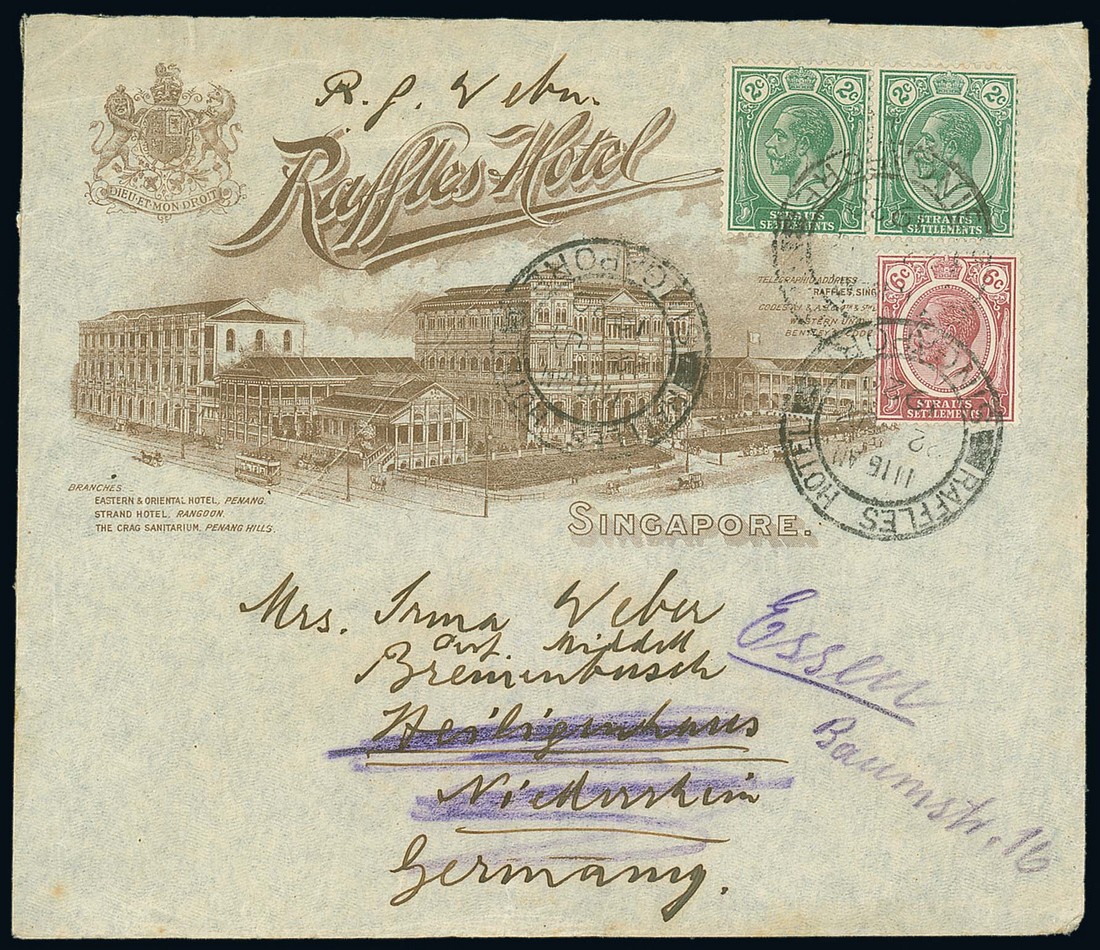 R. J. Weber.
Raffles Hotel
DIEU·ET·MON·DROIT
2c 2c
STRAITS
SETTLEMENTS
2c 2c
STRAITS
SETTLEMENTS
TELEGRAPHIC ADDRESS
"RAFFLES, SING
CODES
WESTERN
BENT
6c 6c
STRAITS
SETTLEMENTS
RAFFLES HOTEL
SINGAPORE
RAFFLES HOTEL
SINGAPORE
1116 AM
BRANCHES
EASTERN & ORIENTAL HOTEL, PENANG.
STRAND HOTEL, RANGOON.
THE CRAG SANITARIUM, PENANG HILLS.
SINGAPORE.
Mrs. Irma Weber
Bremenbusch
Heiligenhaus
Niederrhein
Germany.
Essen
Baumstr. 16